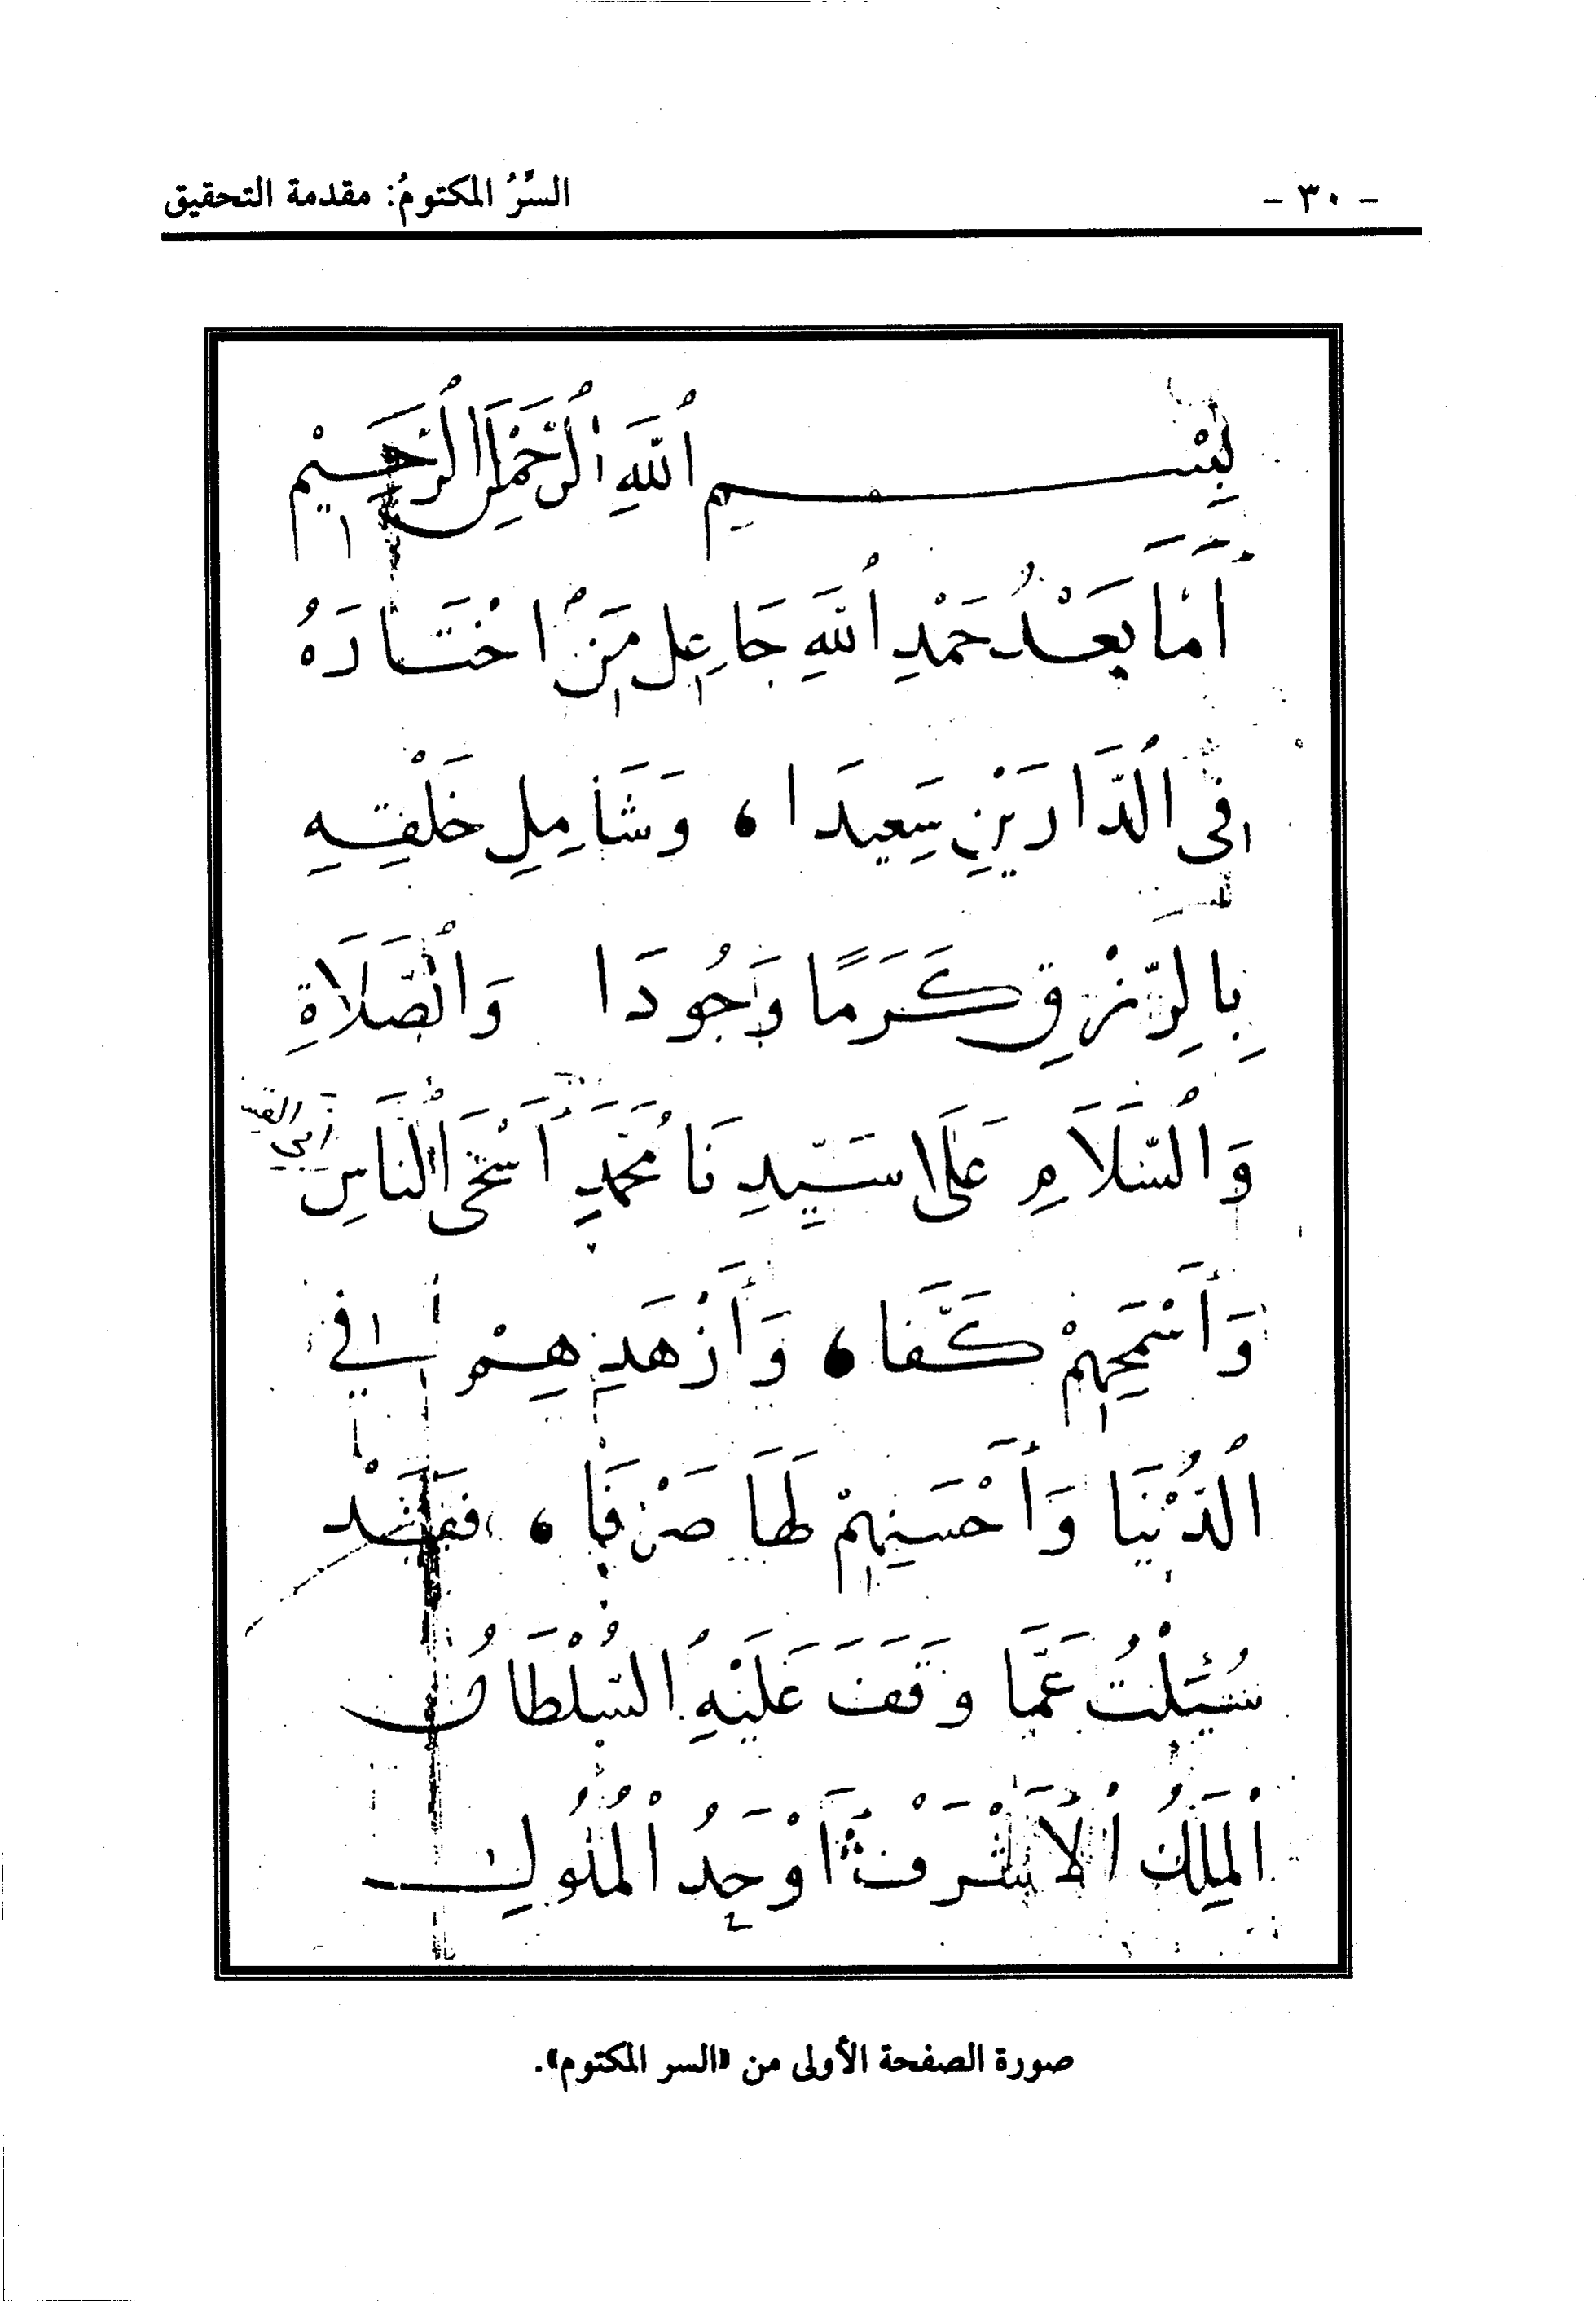 - ٣٠ - السِّرُّ المكتومُ: مقدمة التحقيق
بِسْمِ ٱللَّهِ ٱلرَّحْمٰنِ ٱلرَّحِيْمِ
أَمَّا بَعْدُ حَمْدِ ٱللَّهِ جَاعِلِ مَنِ ٱخْتَارَهُ
فِي ٱلدَّارَيْنِ سَعِيدَا، وَشَامِلِ خَلْقِهِ
بِالرِّزْقِ كَرَمًا وَجُودَا وَٱلصَّلَاةِ
وَٱلسَّلَامِ عَلَى سَيِّدِنَا مُحَمَّدٍ أَسْخَى ٱلنَّاسِ
وَأَسْمَحِهِمْ كَفَّا، وَأَزْهَدِهِمْ فِي
ٱلدُّنْيَا وَأَحْسَنِهِمْ لَهَا صَرْفَا، فَقَدْ
سُئِلْتُ عَمَّا وَقَفَ عَلَيْهِ ٱلسُّلْطَانُ
ٱلْمَلِكُ ٱلْأَشْرَفُ أَوْحَدُ ٱلْمُلُوكِ
صورة الصفحة الأولى من «السر المكتوم».